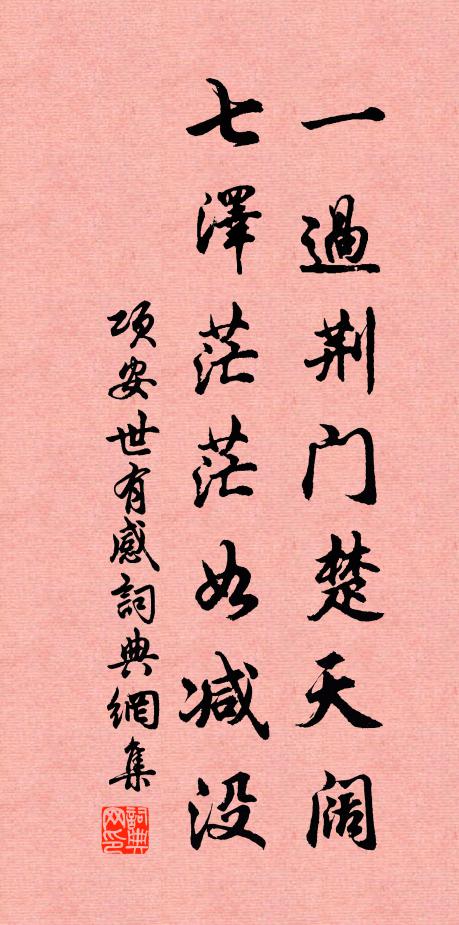 一過荆门楚天阔
七澤茫茫如减没
项安世有感詞典網集
詞典网印